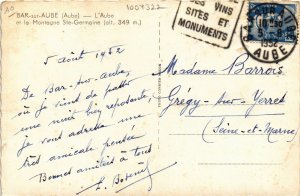 10
1009322
BAR-sur-AUBE (Aube) — L'Aube
et la Montagne Ste-Germaine (alt. 349 m.)
5 août 1952
De Bar-sur-Aube,
où je viens de passer
une nuit bien reposante,
je vous adresse une
très amicale pensée
Bonnes amitiés à tous
VINS
SITES ET
MONUMENTS
1952
AUBE
Madame Barrois
Grégy-sur-Yerres
(Seine-et-Marne)